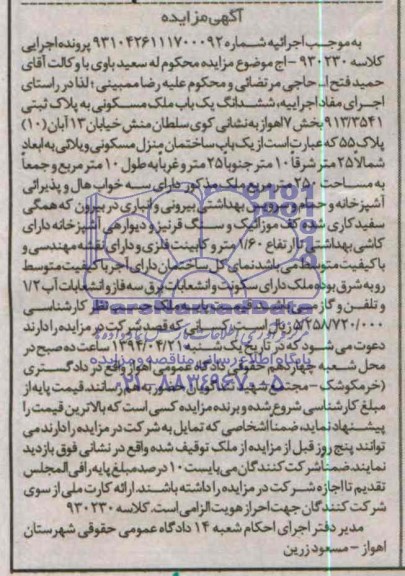 آگهی مزایده
به موجب اجرائیه شماره ۹۳۱۰۴۲۶۱۱۱۷۰۰۰۹۲ پرونده اجرایی
کلاسه ۹۳۰۲۳۰ - اج موضوع مزایده محکوم له سعید باوی با وکالت آقای
حمید فتح اله حاجی مرتضائی و محکوم علیه رضا ممبینی؛ لذا در راستای
اجرای مفاد اجراییه، ششدانگ یک باب ملک مسکونی به پلاک ثبتی
۹۱۳/۳۵۴۱ بخش ۷ اهواز به نشانی کوی سلطان منش خیابان ۱۳ آبان (۱۰)
پلاک ۵۵ که عبارت است از یک باب ساختمان منزل مسکونی ویلائی به ابعاد
شمالاً ۲۵ متر شرقاً ۱۰ متر جنوباً ۲۵ متر و غرباً به طول ۱۰ متر مربع و جمعاً
به مساحت ۲۵۰ متر مربع ملک مذکور دارای سه خواب هال و پذیرائی
آشپزخانه و حمام و سرویس بهداشتی بیرونی و انباری در بیرون که همگی
سفیدکاری شده کف موزائیک و سنگ قرنیز و دیوارهی آشپزخانه دارای
کاشی بهداشتی تا ارتفاع ۱/۶۰ متر و کابینت فلزی و دارای نقشه مهندسی و
با کیفیت متوسط می باشد نمای کل ساختمان دارای آجر با کیفیت متوسط
رو به شرق بوده ملک دارای سکونت و انشعابات برق سه فاز و انشعابات آب ۱/۲
و تلفن و گاز می باشد قیمت پایه ملک حسب نظر کارشناسی
۵/۲۵۸/۷۲۰/۰۰۰ ریال است کسانی که قصد شرکت در مزایده را دارند
دعوت می شود که در تاریخ یک شنبه ۱۳۹۴/۰۴/۲۱ ساعت ده صبح در
محل شعبه چهاردهم حقوقی دادگاه عمومی اهواز واقع در دادگستری
(خرمکوشک - مجتمع شهید حضور به هم رسانند قیمت پایه از
مبلغ کارشناسی شروع شده و برنده مزایده کسی است که بالاترین قیمت را
پیشنهاد نماید، ضمناً اشخاصی که تمایل به شرکت در مزایده را دارند می
توانند پنج روز قبل از مزایده از ملک توقیف شده واقع در نشانی فوق بازدید
نمایند، ضمناً شرکت کنندگان می بایست ۱۰ درصد مبلغ پایه را فی المجلس
تقدیم تا اجازه شرکت در مزایده را داشته باشند، ارائه کارت ملی از سوی
شرکت کنندگان جهت احراز هویت الزامی است. کلاسه ۹۳۰۲۳۰
مدیر دفتر اجرای احکام شعبه ۱۴ دادگاه عمومی حقوقی شهرستان
اهواز - مسعود زرین
ParsNamadData
پایگاه اطلاع رسانی مناقصه و مزایده
۰۲۱-۸۸۳۴۹۶۷۰-۵